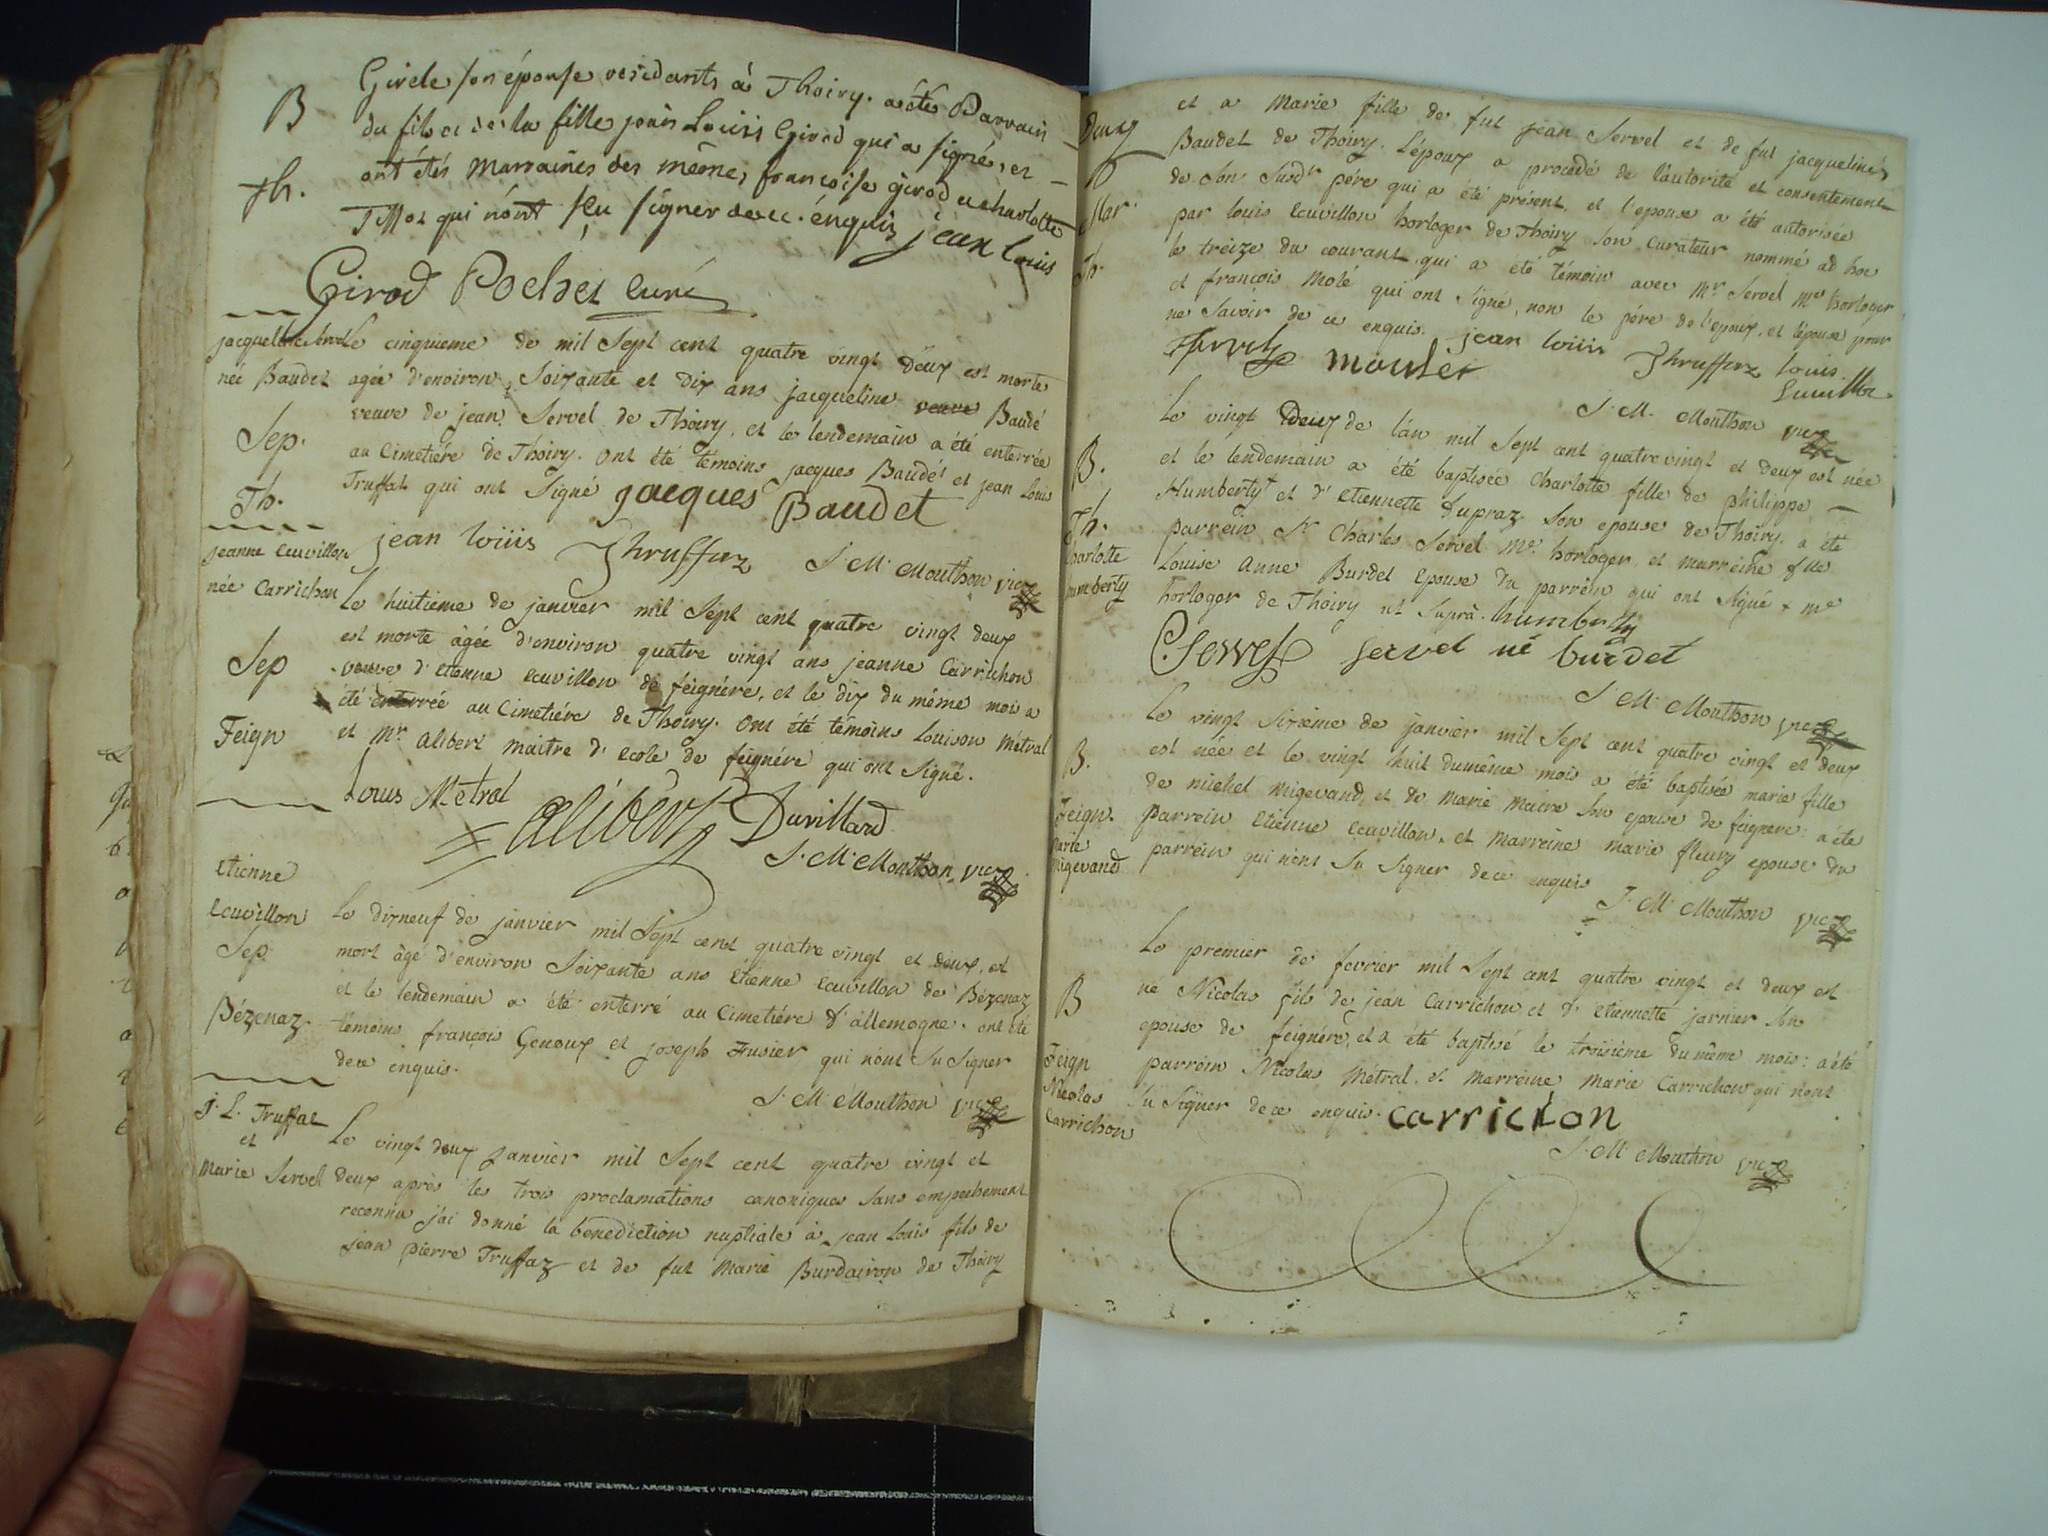 B
Th.
Girele son épouse residants à Thoiry. a été Parrain
du fils et de la fille jean Louis Girod qui a signé, et
ont étés Marraines des même, françoise girod et charlotte
Tissot qui n'ont sçu signer de ce enquis jean louis
Girod Pochet curé
jacqueline Servel
née Baudet
Sep.
Th.
Le cinquieme de mil Sept cent quatre vingt Deux est morte
agée d'environ Soixante et Dix ans jacqueline veuve Baudé
veuve de jean Servel de Thoiry, et le lendemain a été enterrée
au Cimetiére de Thoiry. Ont été témoins jacques Baudét et jean Louis
Truffat qui ont Signé jacques Baudet
jean loüis Thruffaz J. M. Mouthon vic.
jeanne Ecuvillon
née Carrichon
Sep
Feign
Le huitieme de janvier mil Sept cent quatre vingt deux
est morte âgée d'environ quatre vingt ans jeanne Carrichon
veuve d'Etienne Ecuvillon de feignére, et le dix du même mois a
été enterrée au Cimetiére de Thoiry. Ont été témoins Louison Métral
et Mr. Alibert Maitre d'Ecole de feignére qui ont Signé.
Louis Métral Alibert Duvillard
J. M. Mouthon vic.
Etienne
Ecuvillon
Sep.
Bézenaz
Le dixneuf de janvier mil Sept cent quatre vingt et deux, est
mort âgé d'environ Soixante ans Etienne Ecuvillon de Bézenaz
et le lendemain a été enterré au Cimetiére d'allemogne. ont été
témoins françois Genoux et joseph Fusier qui n'ont Su Signer
de ce enquis.
J. M. Mouthon vic.
J. L. Truffat
et
Marie Servel
Le vingt deux janvier mil Sept cent quatre vingt et
deux après les trois proclamations canoniques Sans empechement
reconnu j'ai donné la benediction nuptiale à jean Louis fils de
jean pierre Truffaz et de fut Marie Burdairon de Thoiry
Mar.
Th.
et a Marie fille de fut jean Servel et de fut jacqueline
Baudet de Thoiry. L'époux a procédé de l'autorité et consentement
de Son Susdt. pére qui a été présent, et l'epouse a été autorisée
par louis Ecuvillon horloger de Thoiry Son Curateur nommé ad hoc
le treize du courant qui a été témoin avec Mr. Servel Me. horloger
et françois Molé qui ont Signé, non le pére de l'epoux, et l'épouse pour
ne Savoir de ce enquis. jean loüis Thruffaz Louis
Servel moulet Ecuvillon
J. M. Mouthon vic.
B.
Th.
Charlotte
humberty
Le vingt Deux de l'an mil Sept cent quatre vingt et deux est née
et le lendemain a été baptisée Charlotte fille de philippe
Humberty + et d'Etiennette Dupraz Son epouse de Thoiry. a été
parrein Sr. Charles Servel Me. horloger et marreine
Louise Anne Burdet Epouse du parrein qui ont Signé + Me
horloger de Thoiry ut Suprà. humberty
C Servel servel né burdet
J. M. Mouthon vic.
B.
Feign.
Marie
Migevand
Le vingt Sixieme de janvier mil Sept cent quatre vingt et deux
est née et le vingt huit du même mois a été baptisée marie fille
de michel Migevand, et de Marie Maire Son epouse de feignere. a été
parrein Etienne Ecuvillon, et Marreine marie fleury epouse du
parrein qui n'ont Su Signer de ce enquis
J. M. Mouthon vic.
B
Feign
Nicolas
Carrichon
Le premier de fevrier mil Sept cent quatre vingt et deux est
né Nicolas fils de jean Carrichon et d'Etiennette jarnier Son
epouse de feignére, et a été baptisé le troisieme du même mois: a été
parrein Nicolas Métral, et Marreine Marie Carrichon qui n'ont
Su Signer de ce enquis. carrichon
J. M. Mouthon vic.